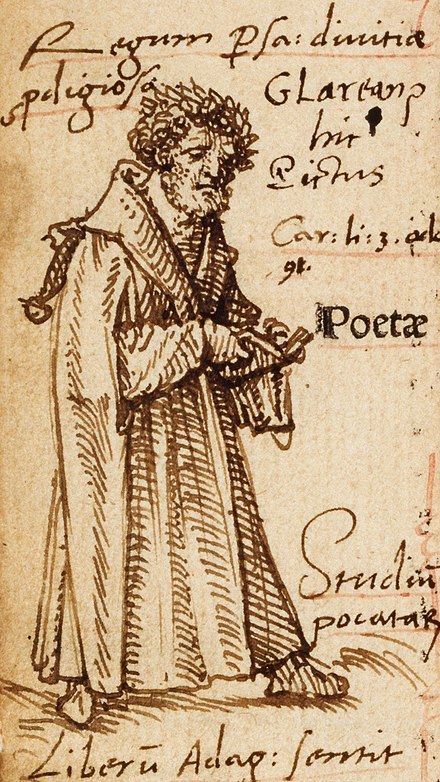 Regum Psa: diuitiæ
prodigiosa
GLareanꝰ
hic
Pictus
Car: li: 3. od
9.
Poetæ
Studiū
pocatar
Liberū Adag: sentit